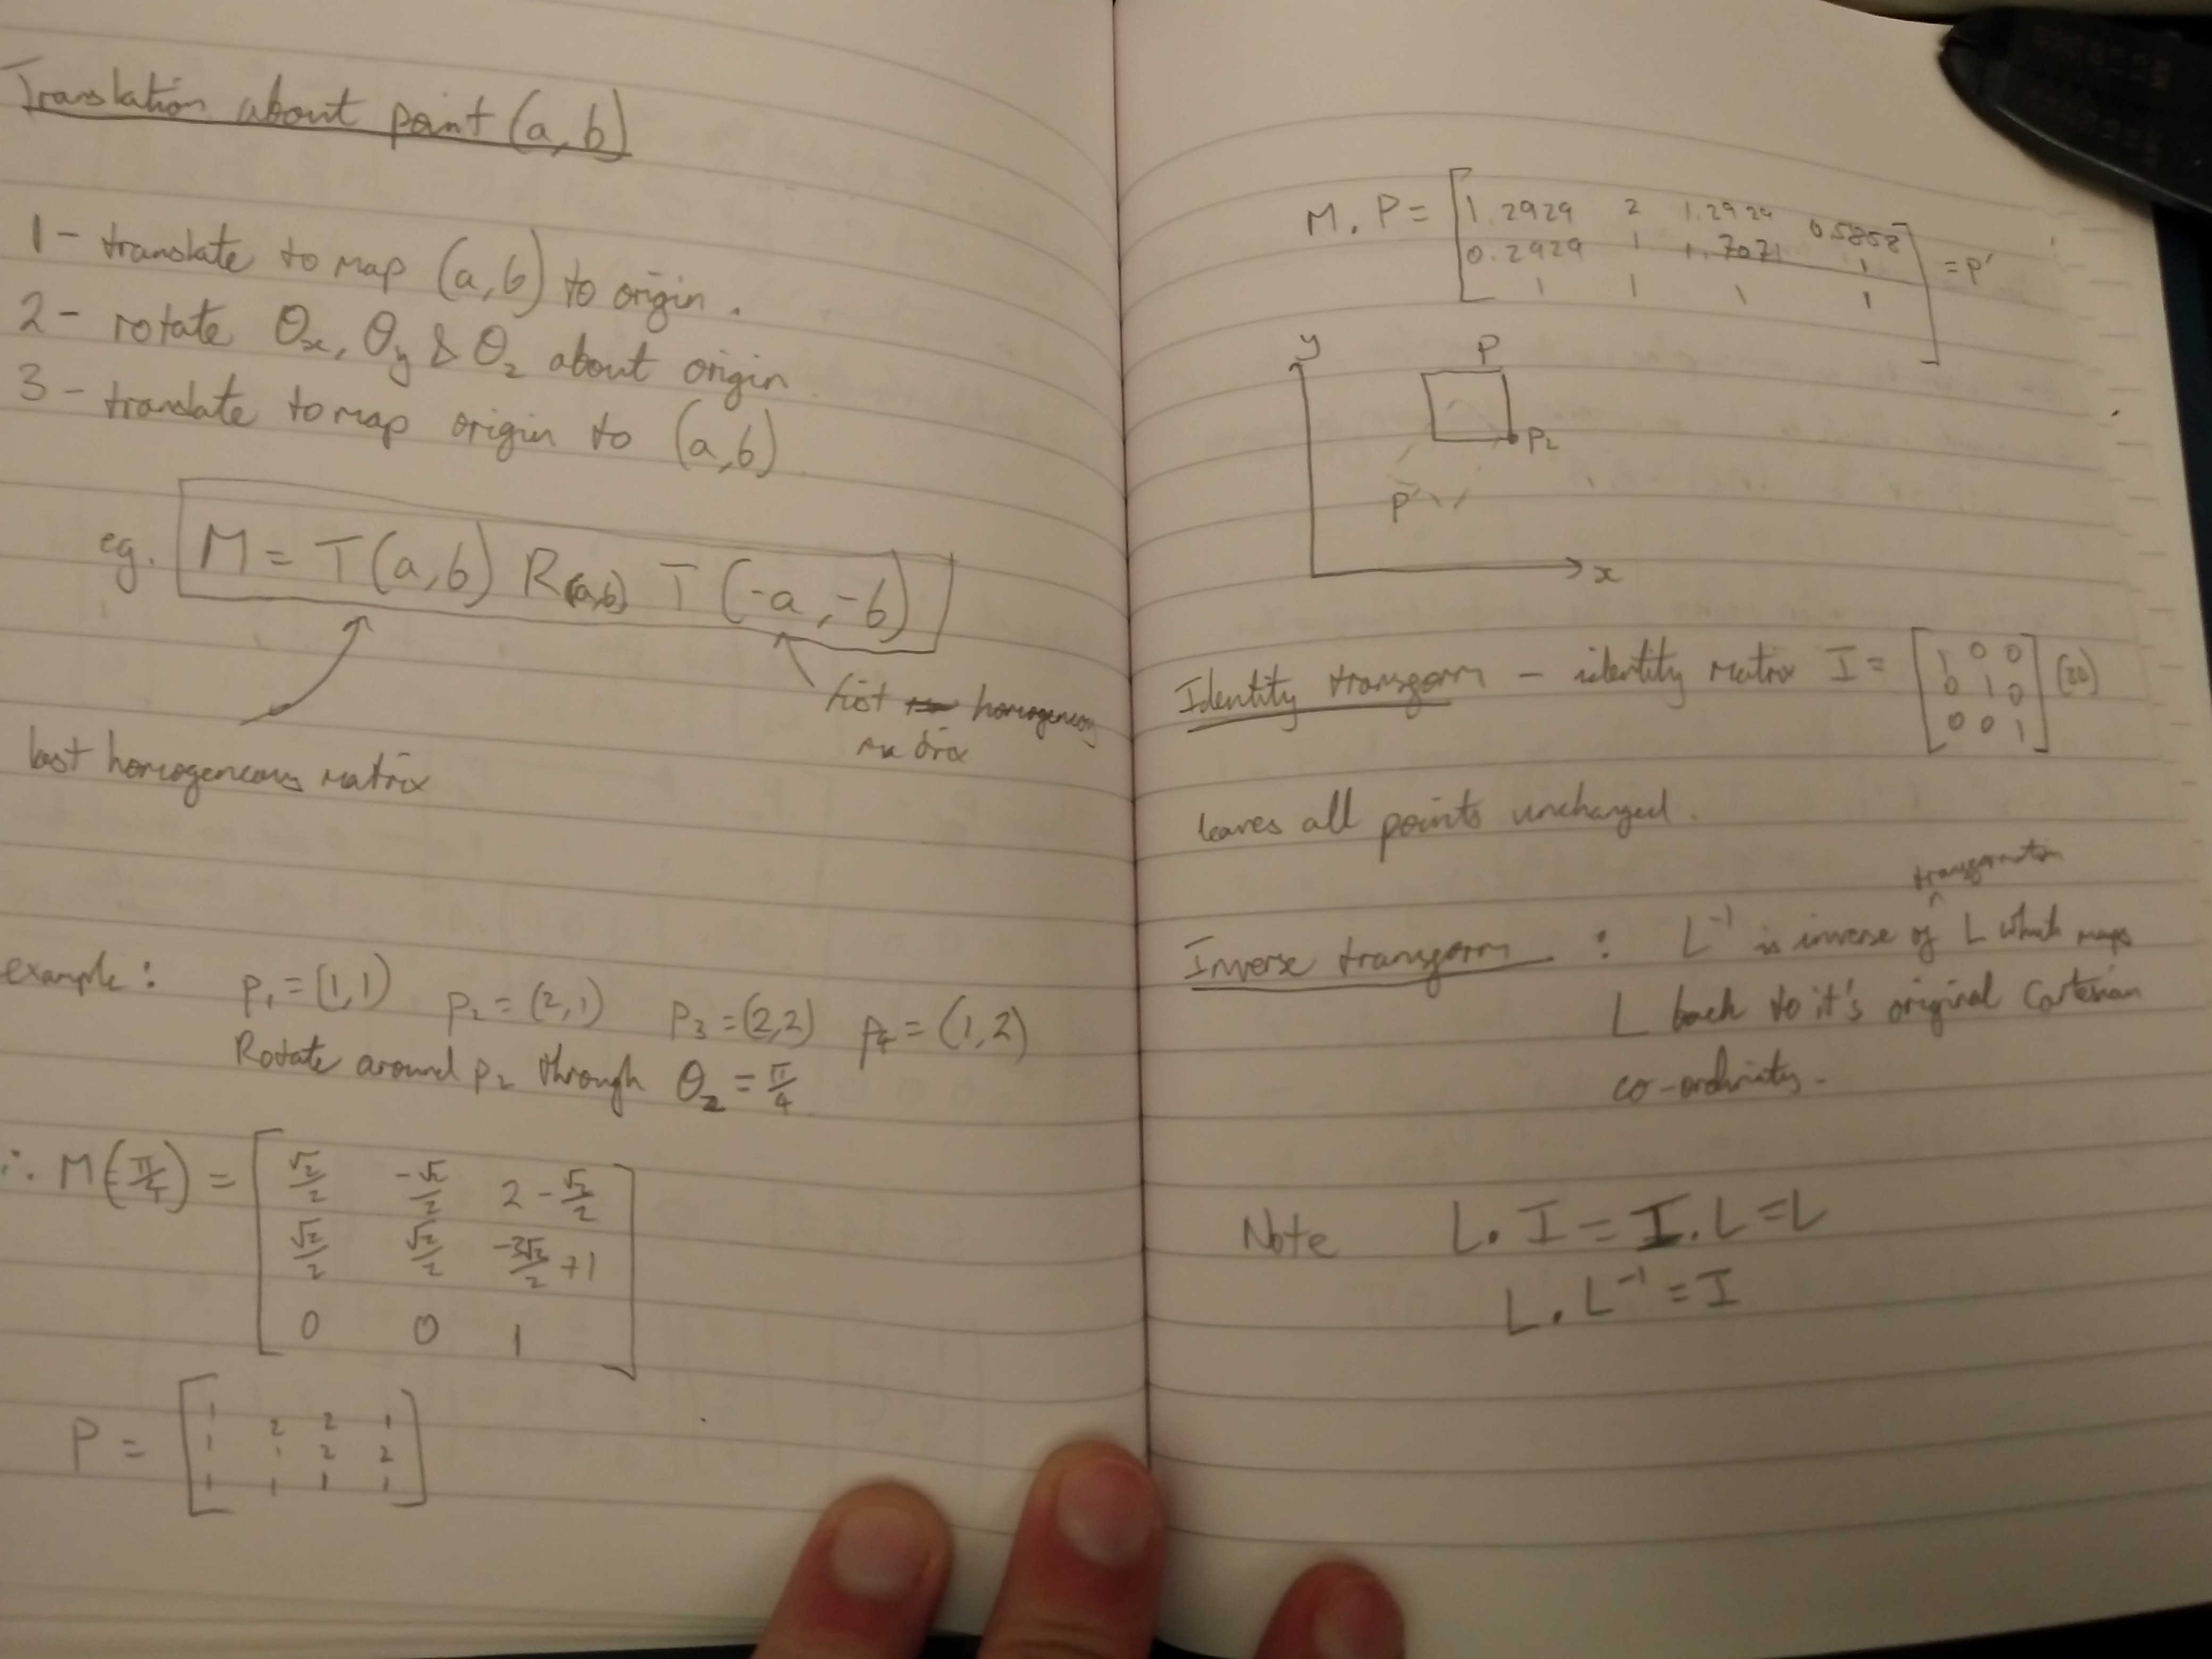 Translation about point (a,b)
1 - translate to map (a,b) to origin.
2 - rotate θx, θy & θz about origin
3 - translate to map origin to (a,b)
eg. M = T(a,b) R(a,b) T(-a,-b)
first homogeneous
matrix
last homogeneous matrix
example: P₁ = (1,1) P₂ = (2,1) P₃ = (2,2) P₄ = (1,2)
Rotate around P₂ through θz = π/4
∴ M(π/4) = [ √2/2 -√2/2 2 - √2/2
√2/2 √2/2 -3√2/2 + 1
0 0 1 ]
P = [ 1 2 2 1
1 1 2 2
1 1 1 1 ]
M. P = [ 1.2929 2 1.2929 0.5858
0.2929 1 1.7071 1
1 1 1 1 ] = P'
y
P
P₂
P'
x
Identity transform - identity matrix I = [ 1 0 0
0 1 0 (2D)
0 0 1 ]
leaves all points unchanged.
transformation
Inverse transform : L⁻¹ is inverse of ^ L which maps
L back to it's original Cartesian
co-ordinates.
Note L. I = I. L = L
L. L⁻¹ = I